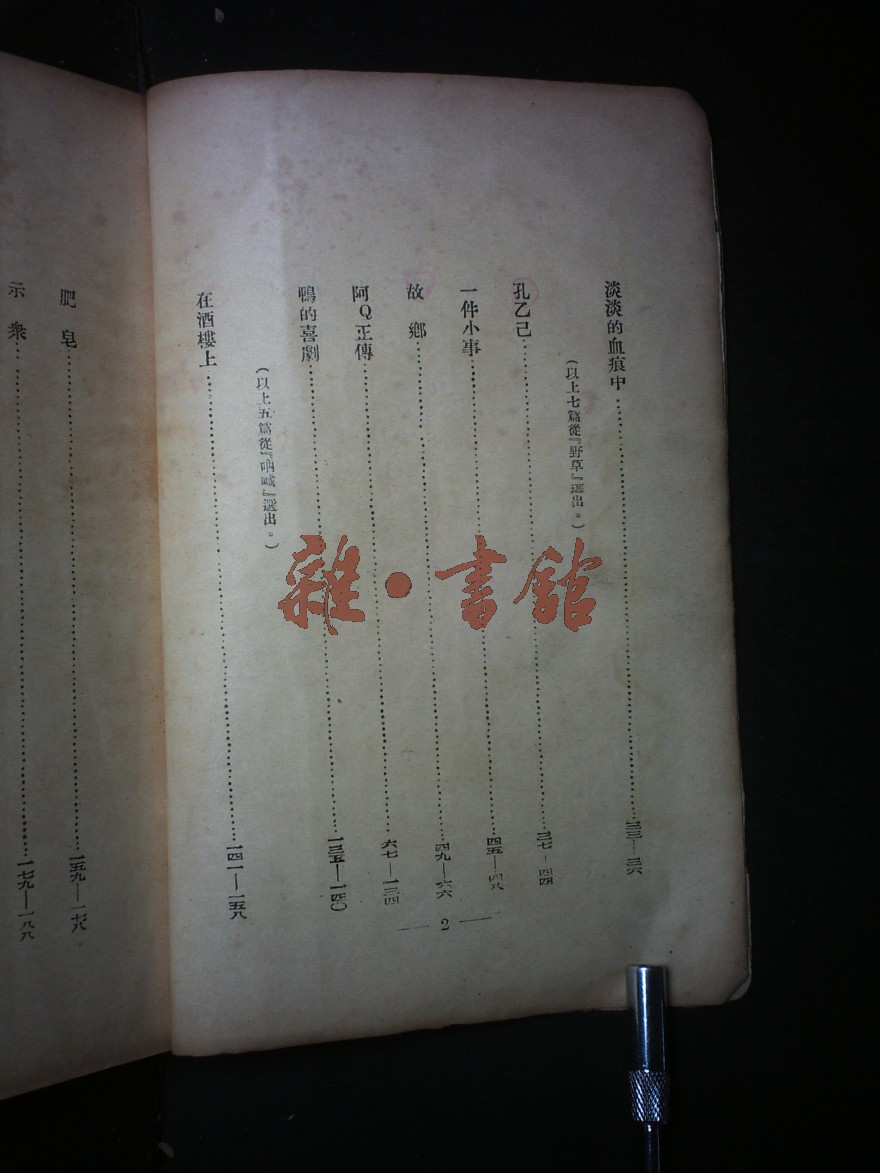 淡淡的血痕中……三三—三六
(以上七篇從『野草』選出。)
孔乙己……三七—四四
一件小事……四五—四八
故鄉……四九—六六
阿Q正傳……六七—一三四
鴨的喜劇……一三五—一四〇
(以上五篇從『吶喊』選出。)
在酒樓上……一四一—一五八
— 2 —
肥皂……一五九—一七八
示衆……一七九—一八八
雜•書館